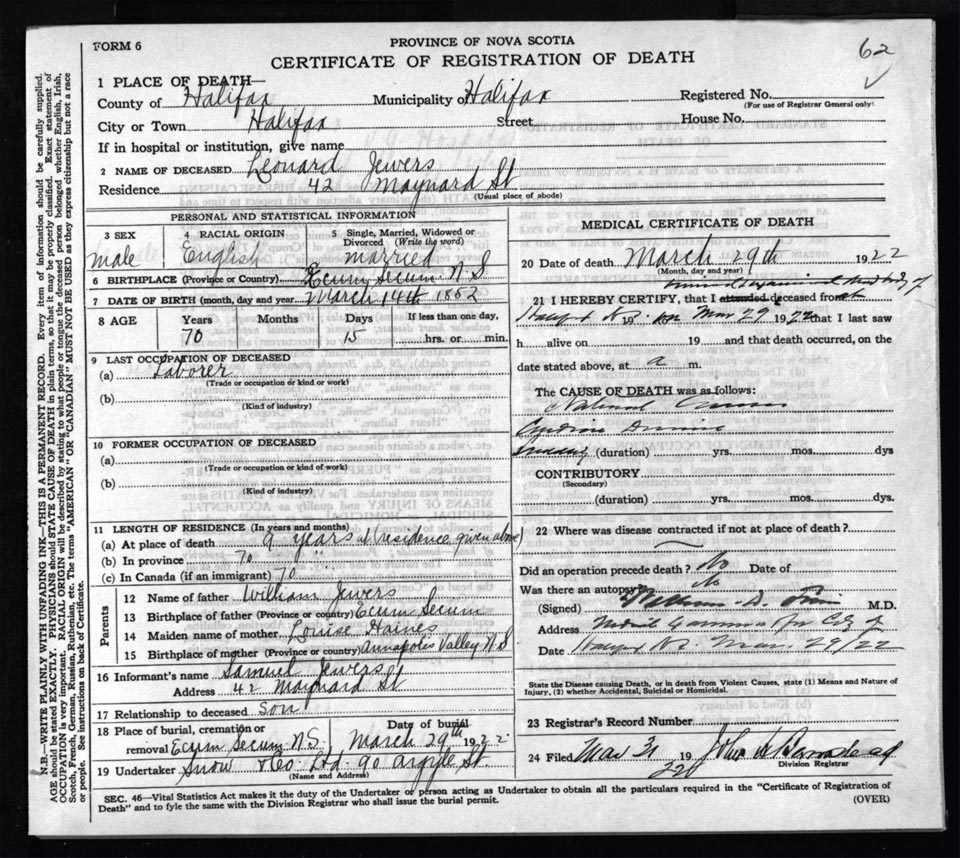 FORM 6
PROVINCE OF NOVA SCOTIA
CERTIFICATE OF REGISTRATION OF DEATH
62
1 PLACE OF DEATH—
County of Halifax Municipality of Halifax Registered No.
(For use of Registrar General only)
City or Town Halifax Street House No.
If in hospital or institution, give name
2 NAME OF DECEASED Leonard Jewers
Residence 42 Maynard St
(Usual place of abode)
PERSONAL AND STATISTICAL INFORMATION
3 SEX male
4 RACIAL ORIGIN English
5 Single, Married, Widowed or Divorced (Write the word) married
6 BIRTHPLACE (Province or Country) Ecum Secum N.S
7 DATE OF BIRTH (month, day and year) March 14th 1852
8 AGE Years Months Days If less than one day,
70 15 hrs. or min.
9 LAST OCCUPATION OF DECEASED
(a) Laborer
(Trade or occupation or kind of work)
(b)
(Kind of industry)
10 FORMER OCCUPATION OF DECEASED
(a)
(Trade or occupation or kind of work)
(b)
(Kind of industry)
11 LENGTH OF RESIDENCE (In years and months)
(a) At place of death 9 years at (residence given above)
(b) In province 70 "
(c) In Canada (if an immigrant) 70
Parents
12 Name of father William Jewers
13 Birthplace of father (Province or country) Ecum Secum
14 Maiden name of mother Louise Haines
15 Birthplace of mother (Province or country) Annapolis Valley N.S
16 Informant's name Samuel Jewers
Address 42 Maynard St
17 Relationship to deceased son
18 Place of burial, cremation or removal Ecum Secum N.S. Date of burial March 29th 1922
19 Undertaker Snow & Co. Ltd. 90 Argyle St
(Name and Address)
MEDICAL CERTIFICATE OF DEATH
20 Date of death March 29th 1922
(Month, day and year)
21 I HEREBY CERTIFY, that I attended deceased from
19 Mar 29 1922 that I last saw
h alive on 19 and that death occurred, on the
date stated above, at a m.
The CAUSE OF DEATH was as follows:
(duration) yrs. mos. dys
CONTRIBUTORY
(Secondary)
(duration) yrs. mos. dys.
22 Where was disease contracted if not at place of death?
Did an operation precede death? No Date of
Was there an autopsy? No
(Signed) M.D.
Address
Date Mar. 29/22
State the Disease causing Death, or in death from Violent Causes, state (1) Means and Nature of Injury, (2) whether Accidental, Suicidal or Homicidal.
23 Registrar's Record Number
24 Filed Mar 31 19 22
Division Registrar
SEC. 46—Vital Statistics Act makes it the duty of the Undertaker or person acting as Undertaker to obtain all the particulars required in the "Certificate of Registration of
Death" and to fyle the same with the Division Registrar who shall issue the burial permit.
(OVER)
N.B.—WRITE PLAINLY WITH UNFADING INK—THIS IS A PERMANENT RECORD. Every item of information should be carefully supplied.
AGE should be stated EXACTLY. PHYSICIANS should STATE CAUSE OF DEATH in plain terms, so that it may be properly classified. Exact statement of
OCCUPATION is very important. RACIAL ORIGIN will be described by stating to what people or tongue the deceased person belonged whether English, Irish,
Scotch, French, German, Russian, Ruthenian, etc. The terms "AMERICAN" OR "CANADIAN" MUST NOT BE USED as they express citizenship but not a race
or people. See instructions on back of Certificate.